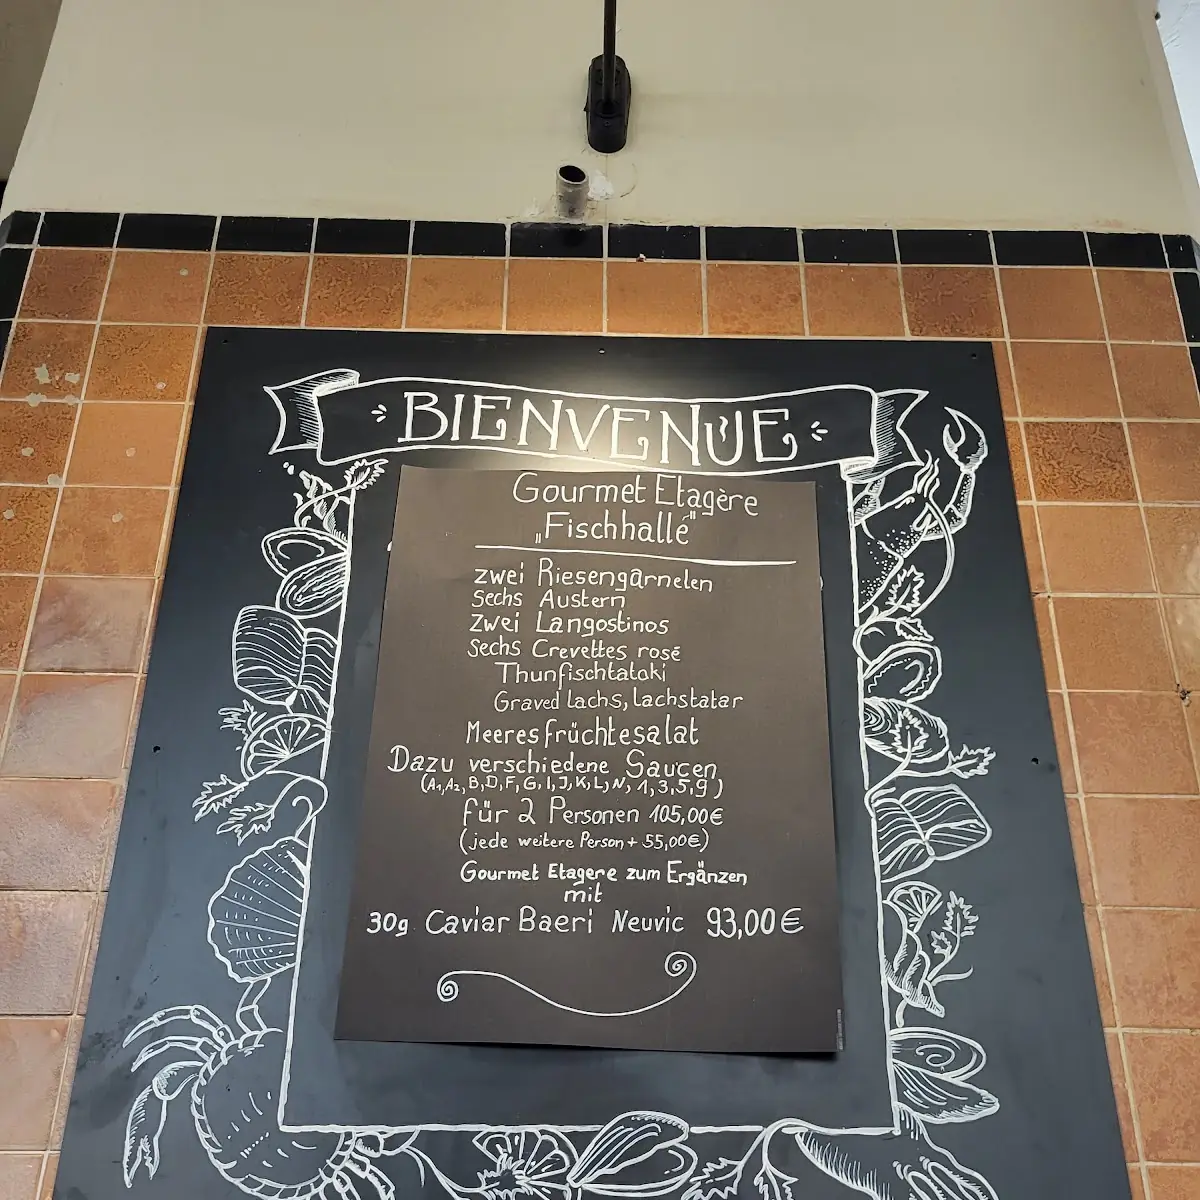 BIENVENUE
Gourmet Etagère
„Fischhalle"
zwei Riesengarnelen
Sechs Austern
zwei Langostinos
Sechs Crevettes rosé
Thunfischtataki
Graved lachs, lachstatar
Meeresfrüchtesalat
Dazu verschiedene Saucen
(A1,A2, B, D, F, G, I, J, K, L, N, 1, 3, 5, 9)
für 2 Personen 105,00€
(jede weitere Person + 55,00€)
Gourmet Etagere zum Ergänzen
mit
30g Caviar Baeri Neuvic 93,00€